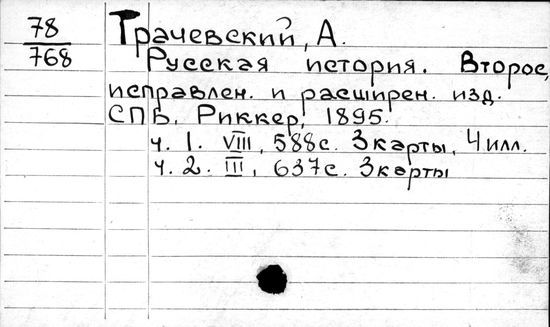 78
768
Трачевский, А.
Русская история. Второе,
исправлен. и расширен. изд.
СПБ, Риккер, 1895.
ч. 1. VIII, 588с. 3 карты, 4 илл.
ч. 2. III, 637с. 3 карты